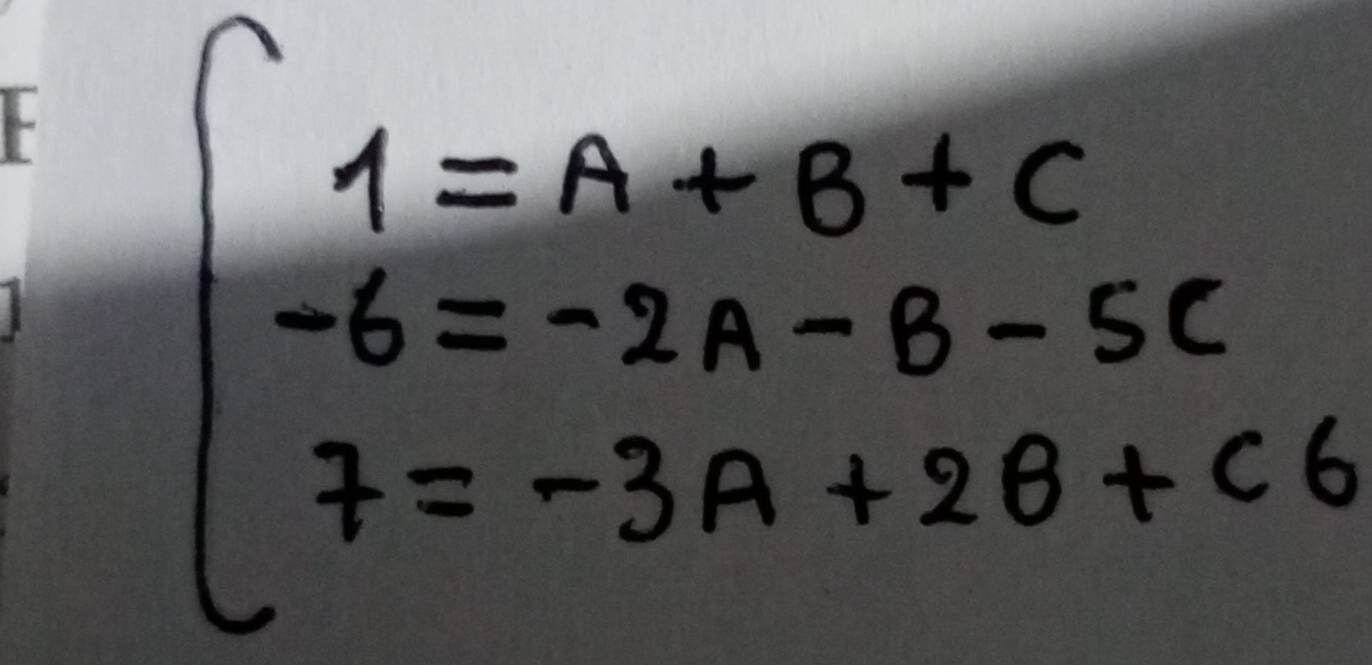 1 = A + B + C
-6 = -2A - B - 5C
7 = -3A + 2B + C6